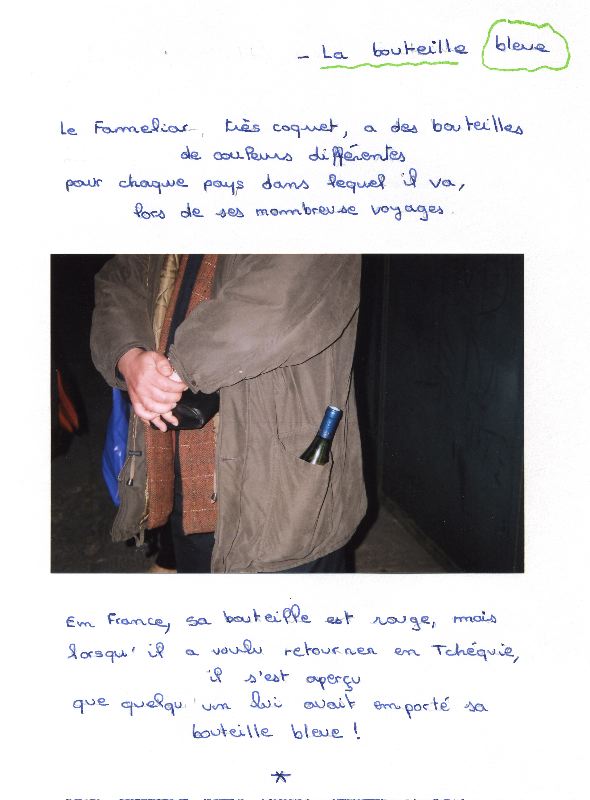 - La bouteille bleue
Le Fameliar, très coquet, a des bouteilles
de couleurs différentes
pour chaque pays dans lequel il va,
lors de ses nombreuse voyages.
En France, sa bouteille est rouge, mais
lorsqu'il a voulu retourner en Tchéquie,
il s'est aperçu
que quelqu'un lui avait emporté sa
bouteille bleue !